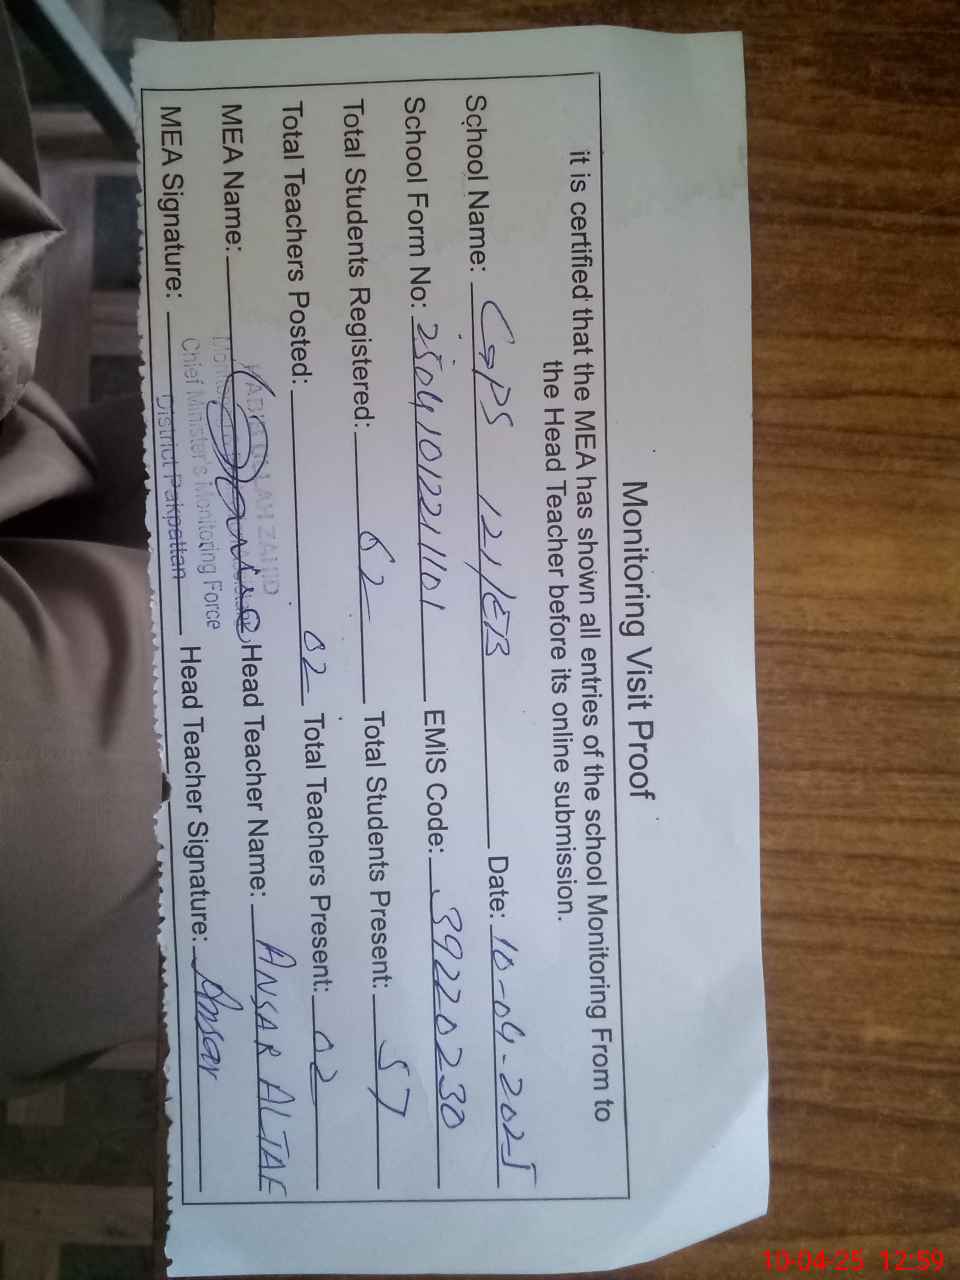 Monitoring Visit Proof
it is certified that the MEA has shown all entries of the school Monitoring From to
the Head Teacher before its online submission.
School Name: GPS 121/EB Date: 10-04-2025
School Form No: 2504101221101 EMIS Code: 39220230
Total Students Registered: 62 Total Students Present: 57
Total Teachers Posted: 02 Total Teachers Present: 02
MEA Name: Head Teacher Name: ANSAR ALTAF
MEA Signature: Head Teacher Signature: Ansar
ZAHID
Chief Minister's Monitoring Force
District Pakpattan
10-04-25 12:59